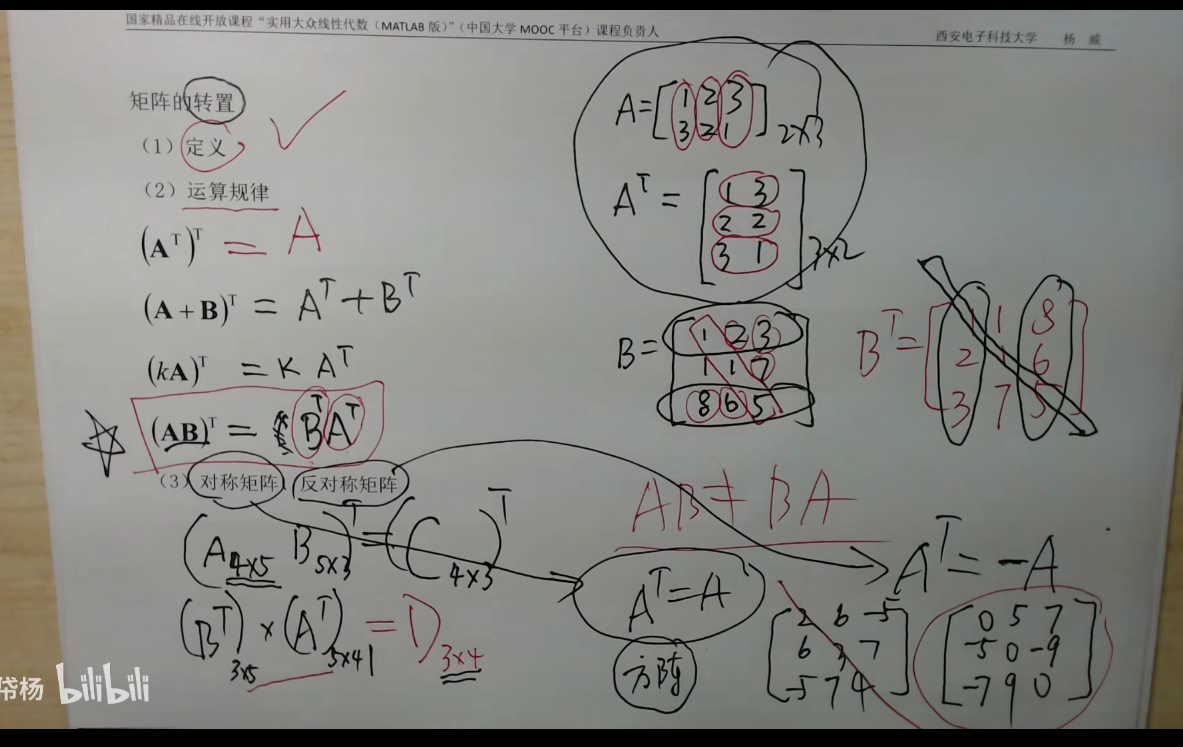 国家精品在线开放课程“实用大众线性代数（MATLAB 版）”（中国大学 MOOC 平台）课程负责人
西安电子科技大学 杨 威
矩阵的转置
（1）定义
（2）运算规律
(Aᵀ)ᵀ = A
(A + B)ᵀ = Aᵀ + Bᵀ
(kA)ᵀ = K Aᵀ
(AB)ᵀ = BᵀAᵀ
（3）对称矩阵，反对称矩阵
(A 4×5 B 5×3)ᵀ = (C 4×3)ᵀ
(Bᵀ) 3×5 × (Aᵀ) 5×4 = D 3×4
A = [1 2 3
3 2 1] 2×3
Aᵀ = [1 3
2 2
3 1] 3×2
B = [1 2 3
1 1 7
8 6 5]
Bᵀ = [1 1 8
2 1 6
3 7 5]
AB ≠ BA
Aᵀ = A
方阵
Aᵀ = -A
[2 6 -5
6 3 7
-5 7 4]
[0 5 7
-5 0 -9
-7 9 0]
帶杨 bilibili